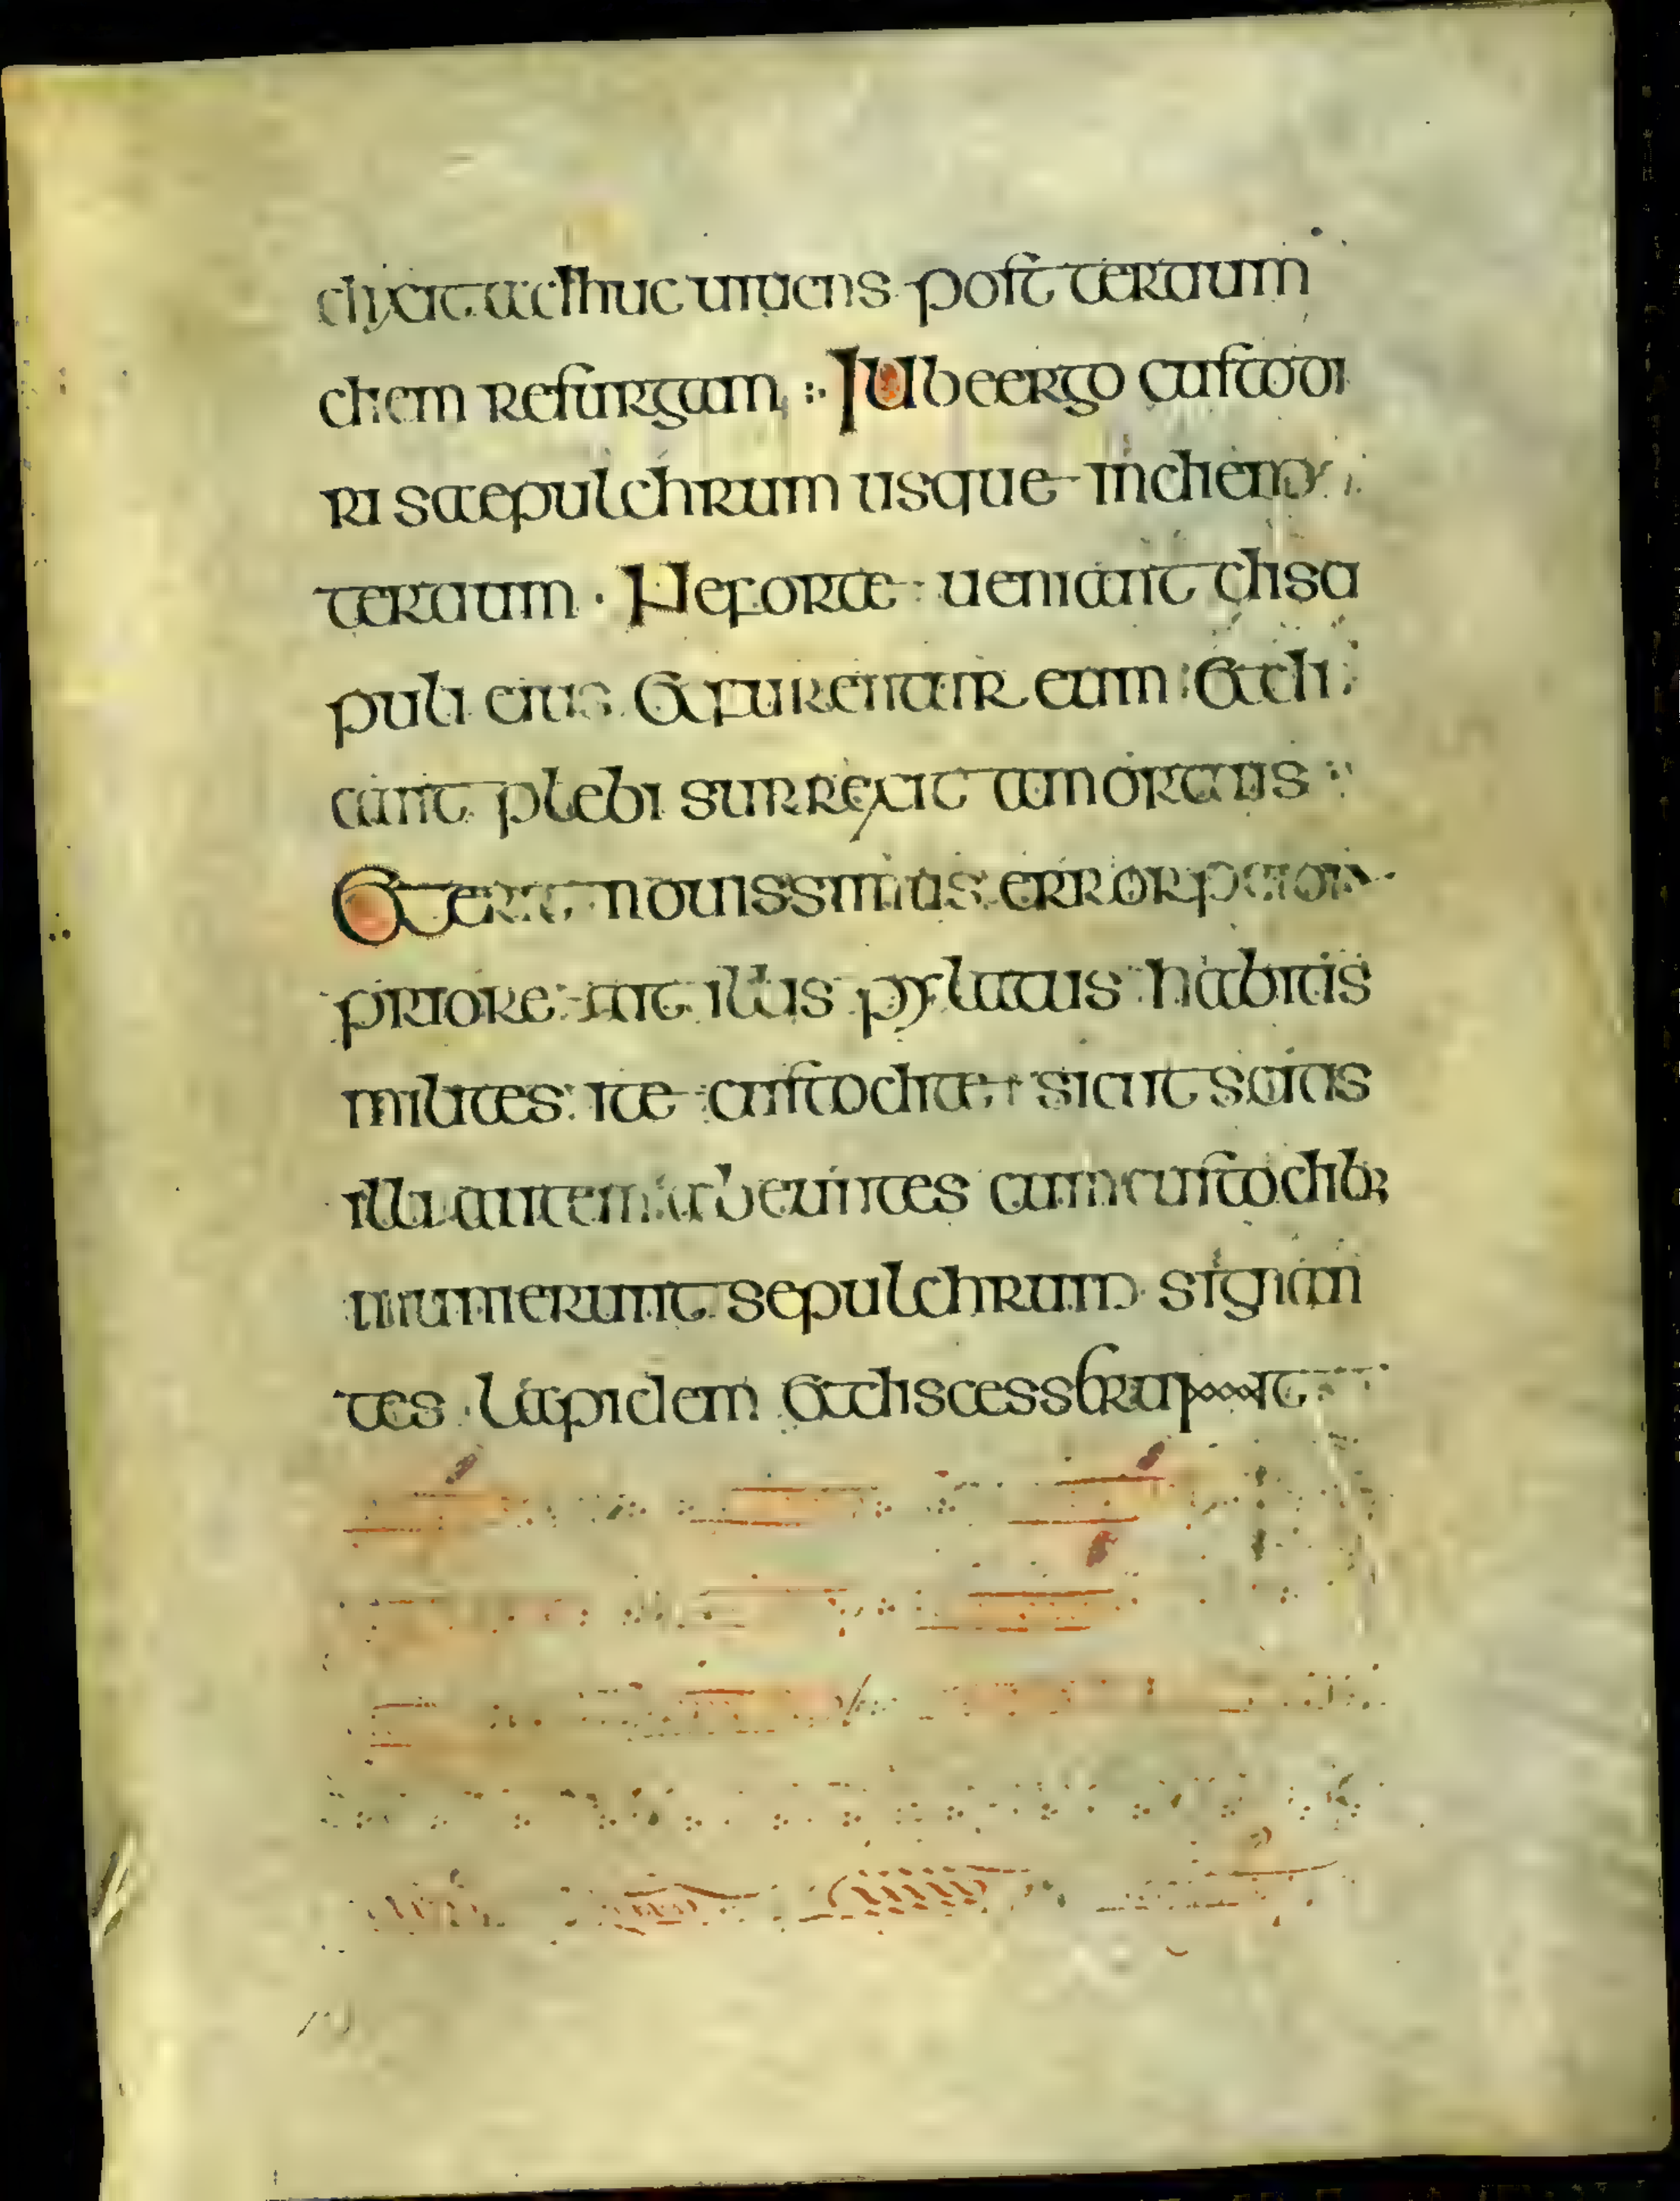 dixit adhuc uiuens post tertium
diem resurgam :· Iube ergo custodi
ri saepulchrum usque in diem
tertium · Ne forte ueniant disci
puli eius et furentur eum : et di
cant plebi surrexit a mortuis :·
Et erit nouissimus error peior
priore : ait illis pylatus habitis
milites : ite custodite sicut scitis
illi autem abeuntes cum custodib;
munierunt sepulchrum signan
tes lapidem et discesserunt